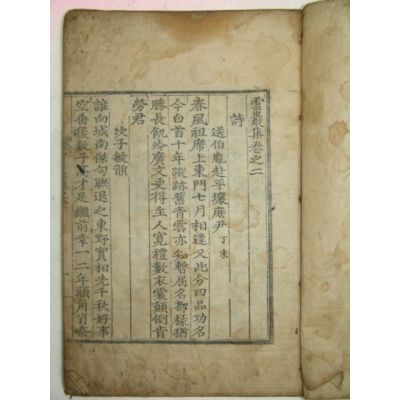 雲巖集卷之二
詩
送伯胤赴平壤庶尹 丁未
春風祖席上東門七月相逢又此分四品功名
今白首十年蹤跡舊青雲亦知暫屈名都樣猶
勝長飢冷廣文更得主人寬禮數衣裳顚倒肯
勞君
次子敏韻
誰向城南傑句聯退之東野實相先千秋好事
空番後數子英才足繼前幸一二年顓角肯